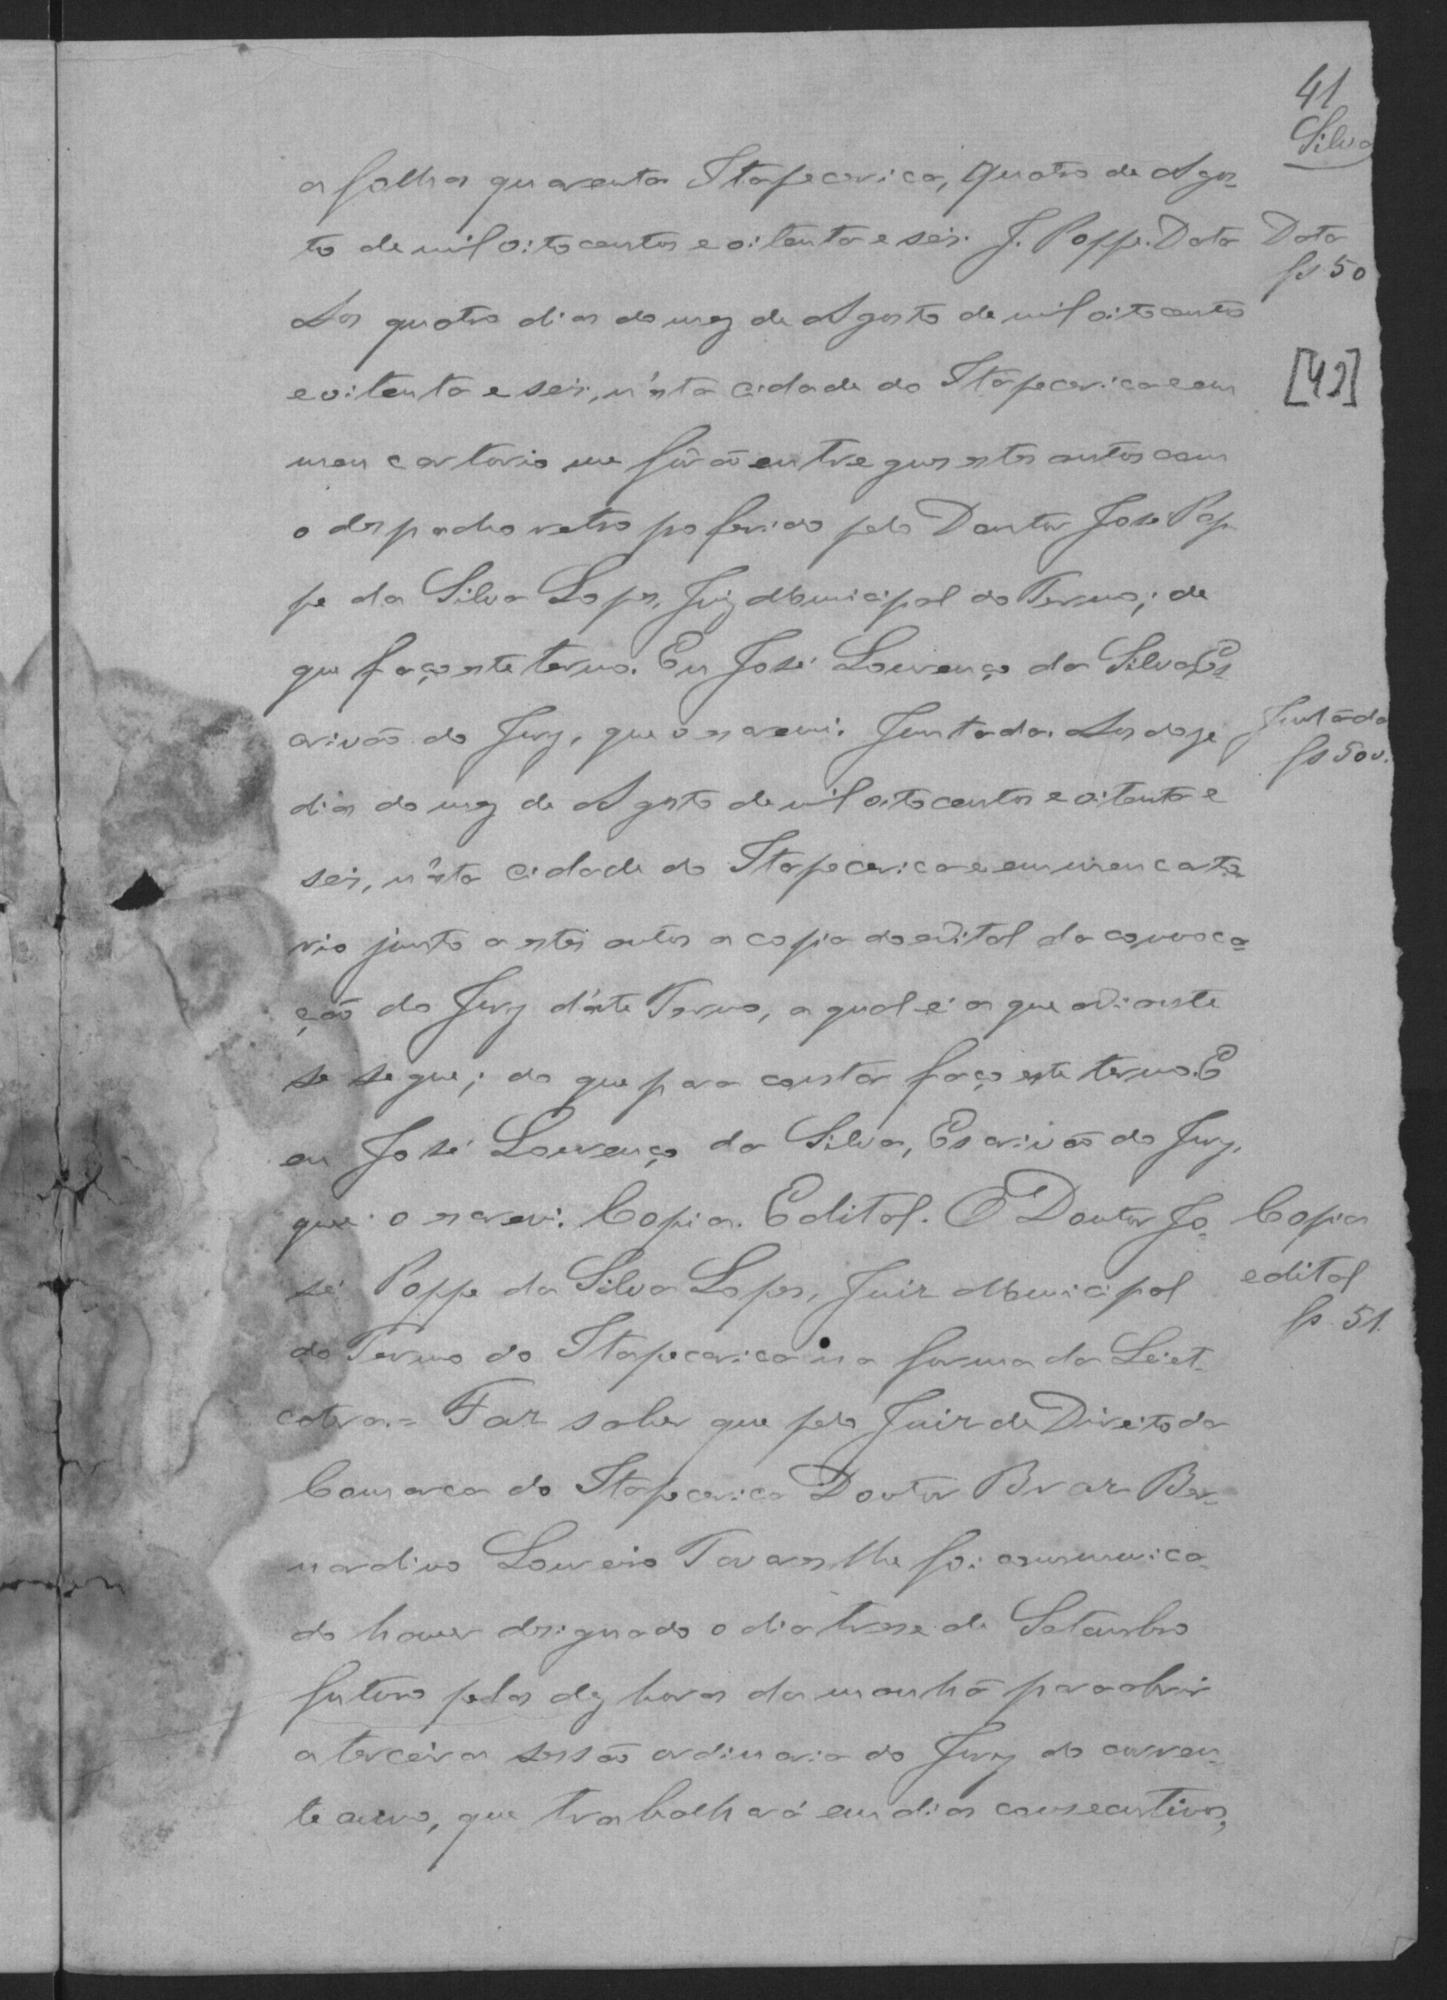 41
Silva
a folhas quarenta Itapecerica, quatro de Agos-
to de mil oitocentos e oitenta e seis. J. Poppe. Data
Data
fs 50
Aos quatro dias do mez de Agosto de mil oitocentos
e oitenta e seis, n'esta cidade do Itapecerica e em
[42]
meu cartorio me forão entregues estes autos com
o despacho retro proferido pelo Doutor José Pop
pe da Silva Lopes, Juiz Municipal do Termo; de
que faço este termo. Eu José Lourenço da Silva, Es-
crivão do Jury, que o escrevi. Juntada. Aos doze
Juntáda
fs 50v.
dias do mez de Agosto de mil oitocentos e oitenta e
seis, n'esta cidade do Itapecerica e em meu carto-
rio junto a estes autos a copia do edital da convoca-
ção do Jury d'este Termo, a qual é a que adiante
se segue; do que para constar faço este termo. E
eu José Lourenço da Silva, Escrivão do Jury,
que o escrevi. Copia. Edital. O Doutor Jo-
Copia
edital
fs. 51.
sé Poppe da Silva Lopes, Juiz Municipal
do Termo do Itapecerica na forma da Lei et-
cetera.= Faz saber que pelo Juiz de Direito da
Comarca do Itapecerica Doutor Braz Ber-
nardino Loureiro Tavares lhe foi communica-
do haver designado o dia treze de Setembro
futuro pelas dez horas da manhã para abrir
a terceira sessão ordinaria do Jury do corren-
te anno, que trabalhará em dias consecutivos,